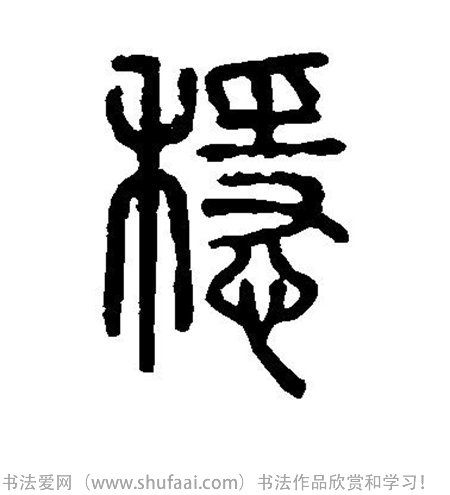 穩
书法爱网（www.shufaai.com）书法作品欣赏和学习!